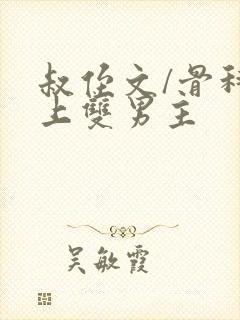 叔侄文/骨科
上雙男主
吴敏霞